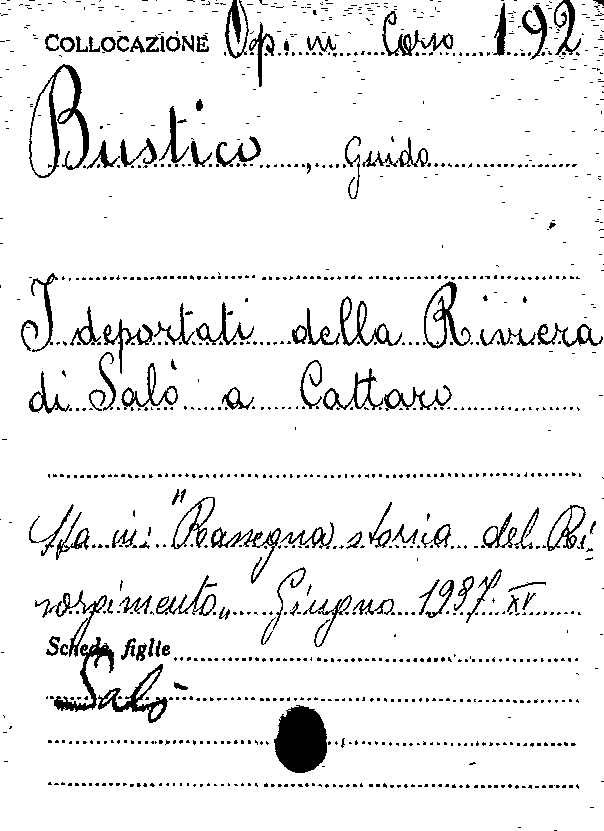 COLLOCAZIONE Op. in Corso 192
Bustico, Guido
I deportati della Riviera
di Salò a Cattaro
Sta in: "Rassegna storica del Ri-
sorgimento„ Giugno 1937. XV
Schede figlie
Salò